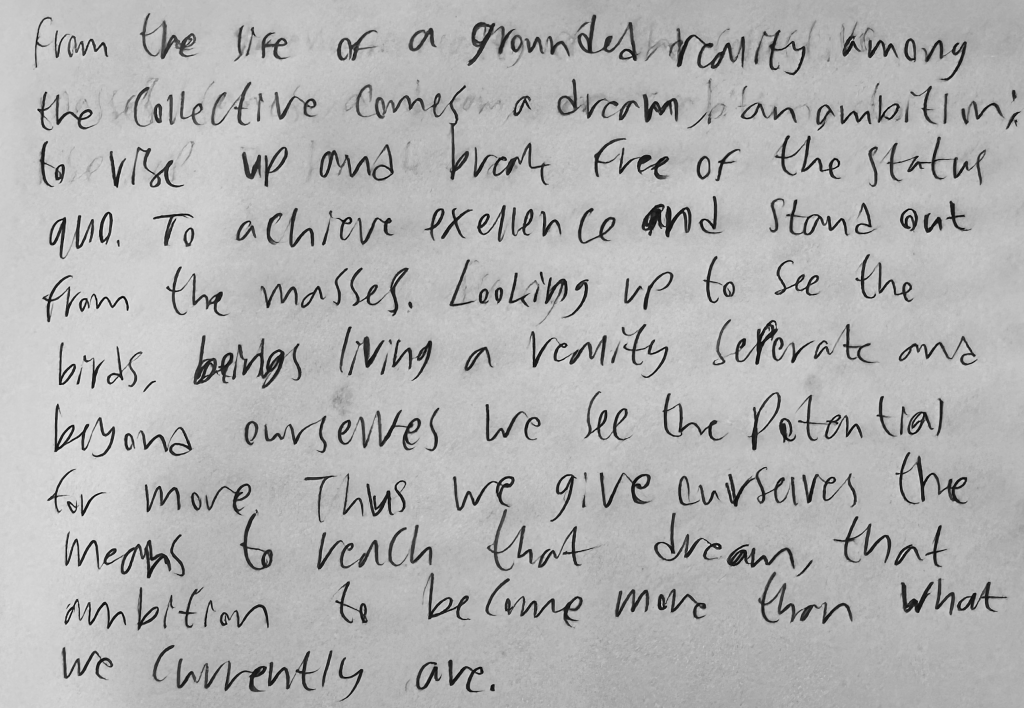 From the life of a grounded reality among
the collective comes a dream, an ambition;
to rise up and break free of the status
quo. To achieve exellence and stand out
from the masses. Looking up to see the
birds, beings living a reality seperate and
beyond ourselves we see the potential
for more. Thus we give ourselves the
means to reach that dream, that
ambition to become more than what
we currently are.